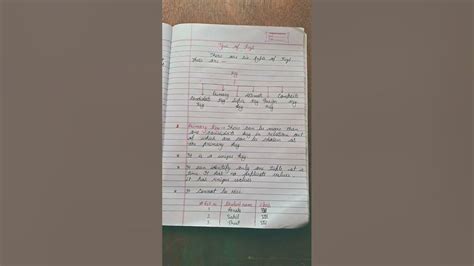 Types of Keys
There are six types of Keys
These are —
Key
Primary Alternate Composite
Candidate Key Super Foreign Key
Key Key Key
Primary Key :- There can be more than
one Candidate Key in relation out
of which one can be chosen as
the primary Key
It is a unique Key
It can identify only one tuple at a
time. It has no duplicate values,
it has unique values
It cannot be NULL
Student name Class
1
2 VII
3 VII